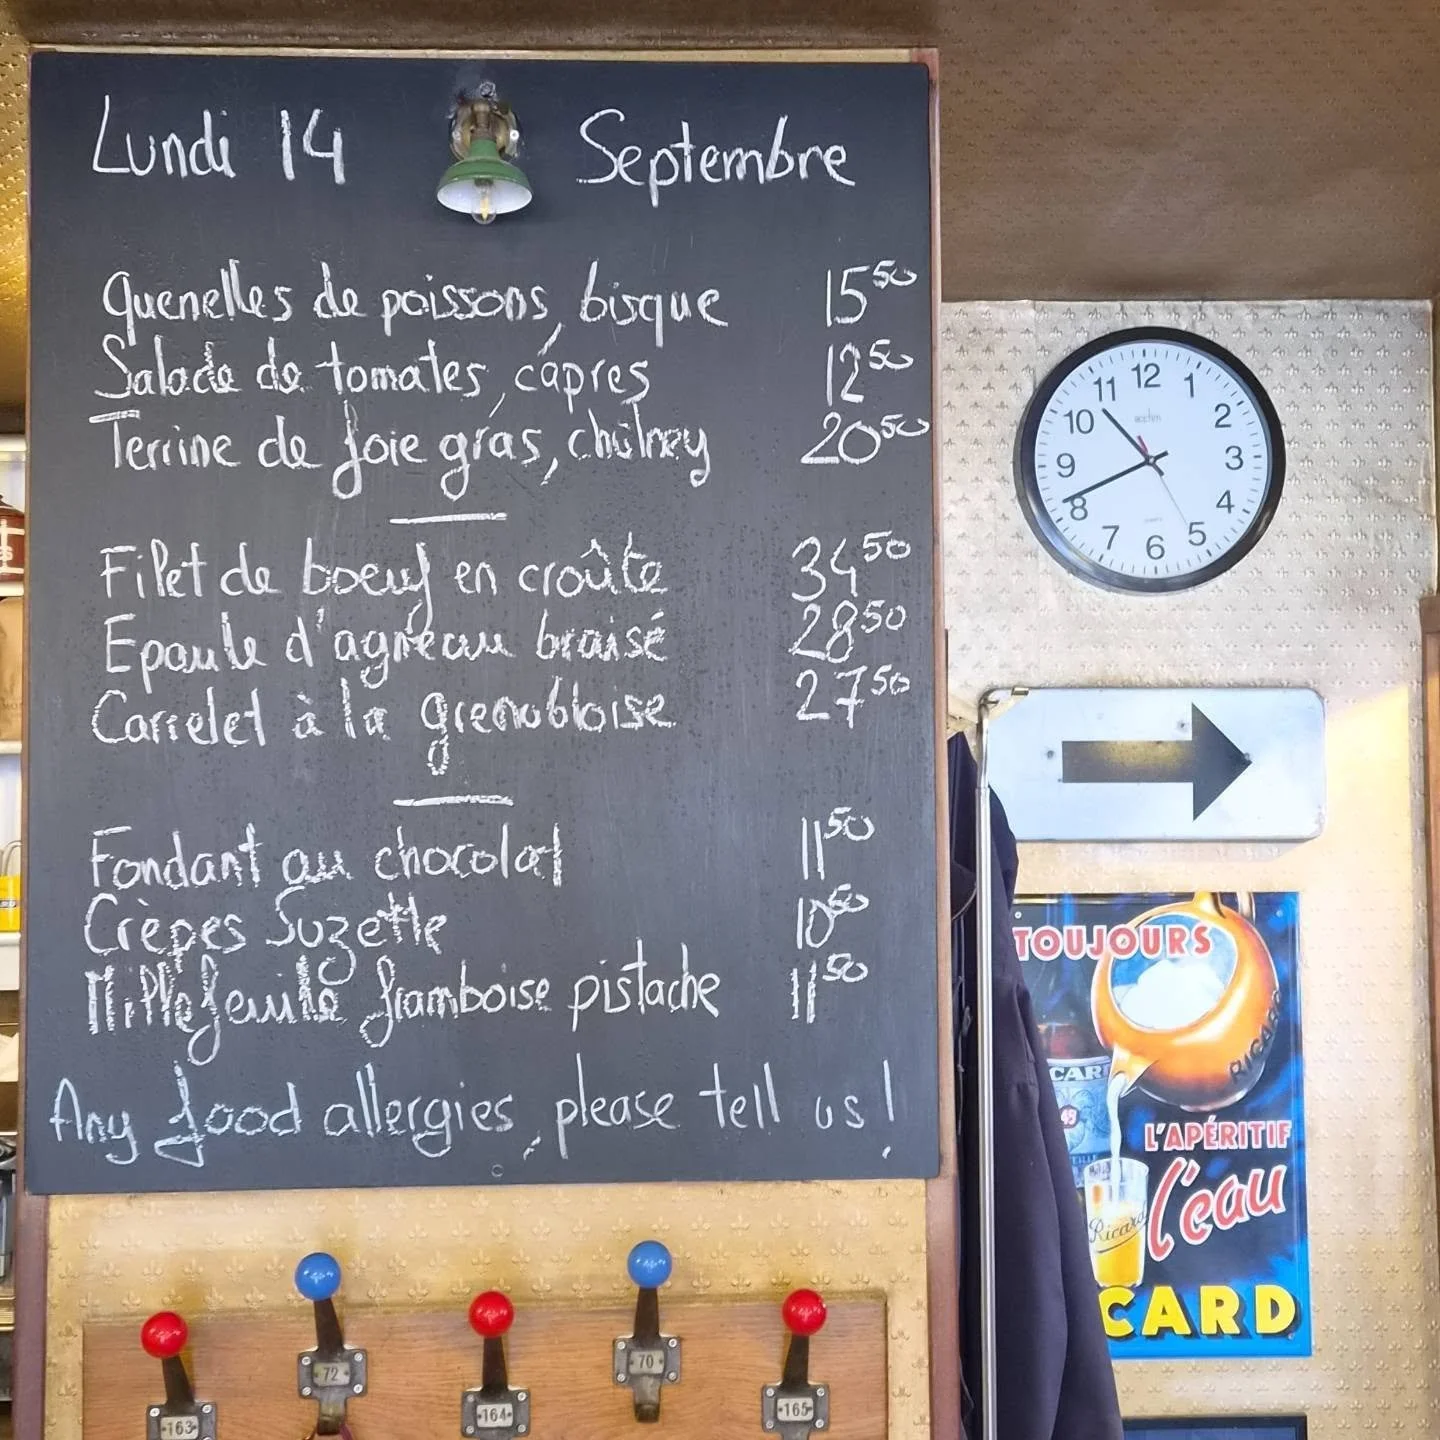 Lundi 14 Septembre
Quenelles de poissons, bisque 15⁵⁰
Salade de tomates, câpres 12⁵⁰
Terrine de foie gras, chutney 20⁵⁰
Filet de boeuf en croûte 34⁵⁰
Epaule d'agneau braisé 28⁵⁰
Carrelet à la grenobloise 27⁵⁰
Fondant au chocolat 11⁵⁰
Crèpes Suzette 10⁵⁰
Millefeuille framboise pistache 11⁵⁰
Any food allergies, please tell us!
12
1
2
3
4
5
6
7
8
9
10
11
TOUJOURS
RICARD
CARD
45
L'APÉRITIF
l'eau
Ricard
CARD
163
72
164
70
165